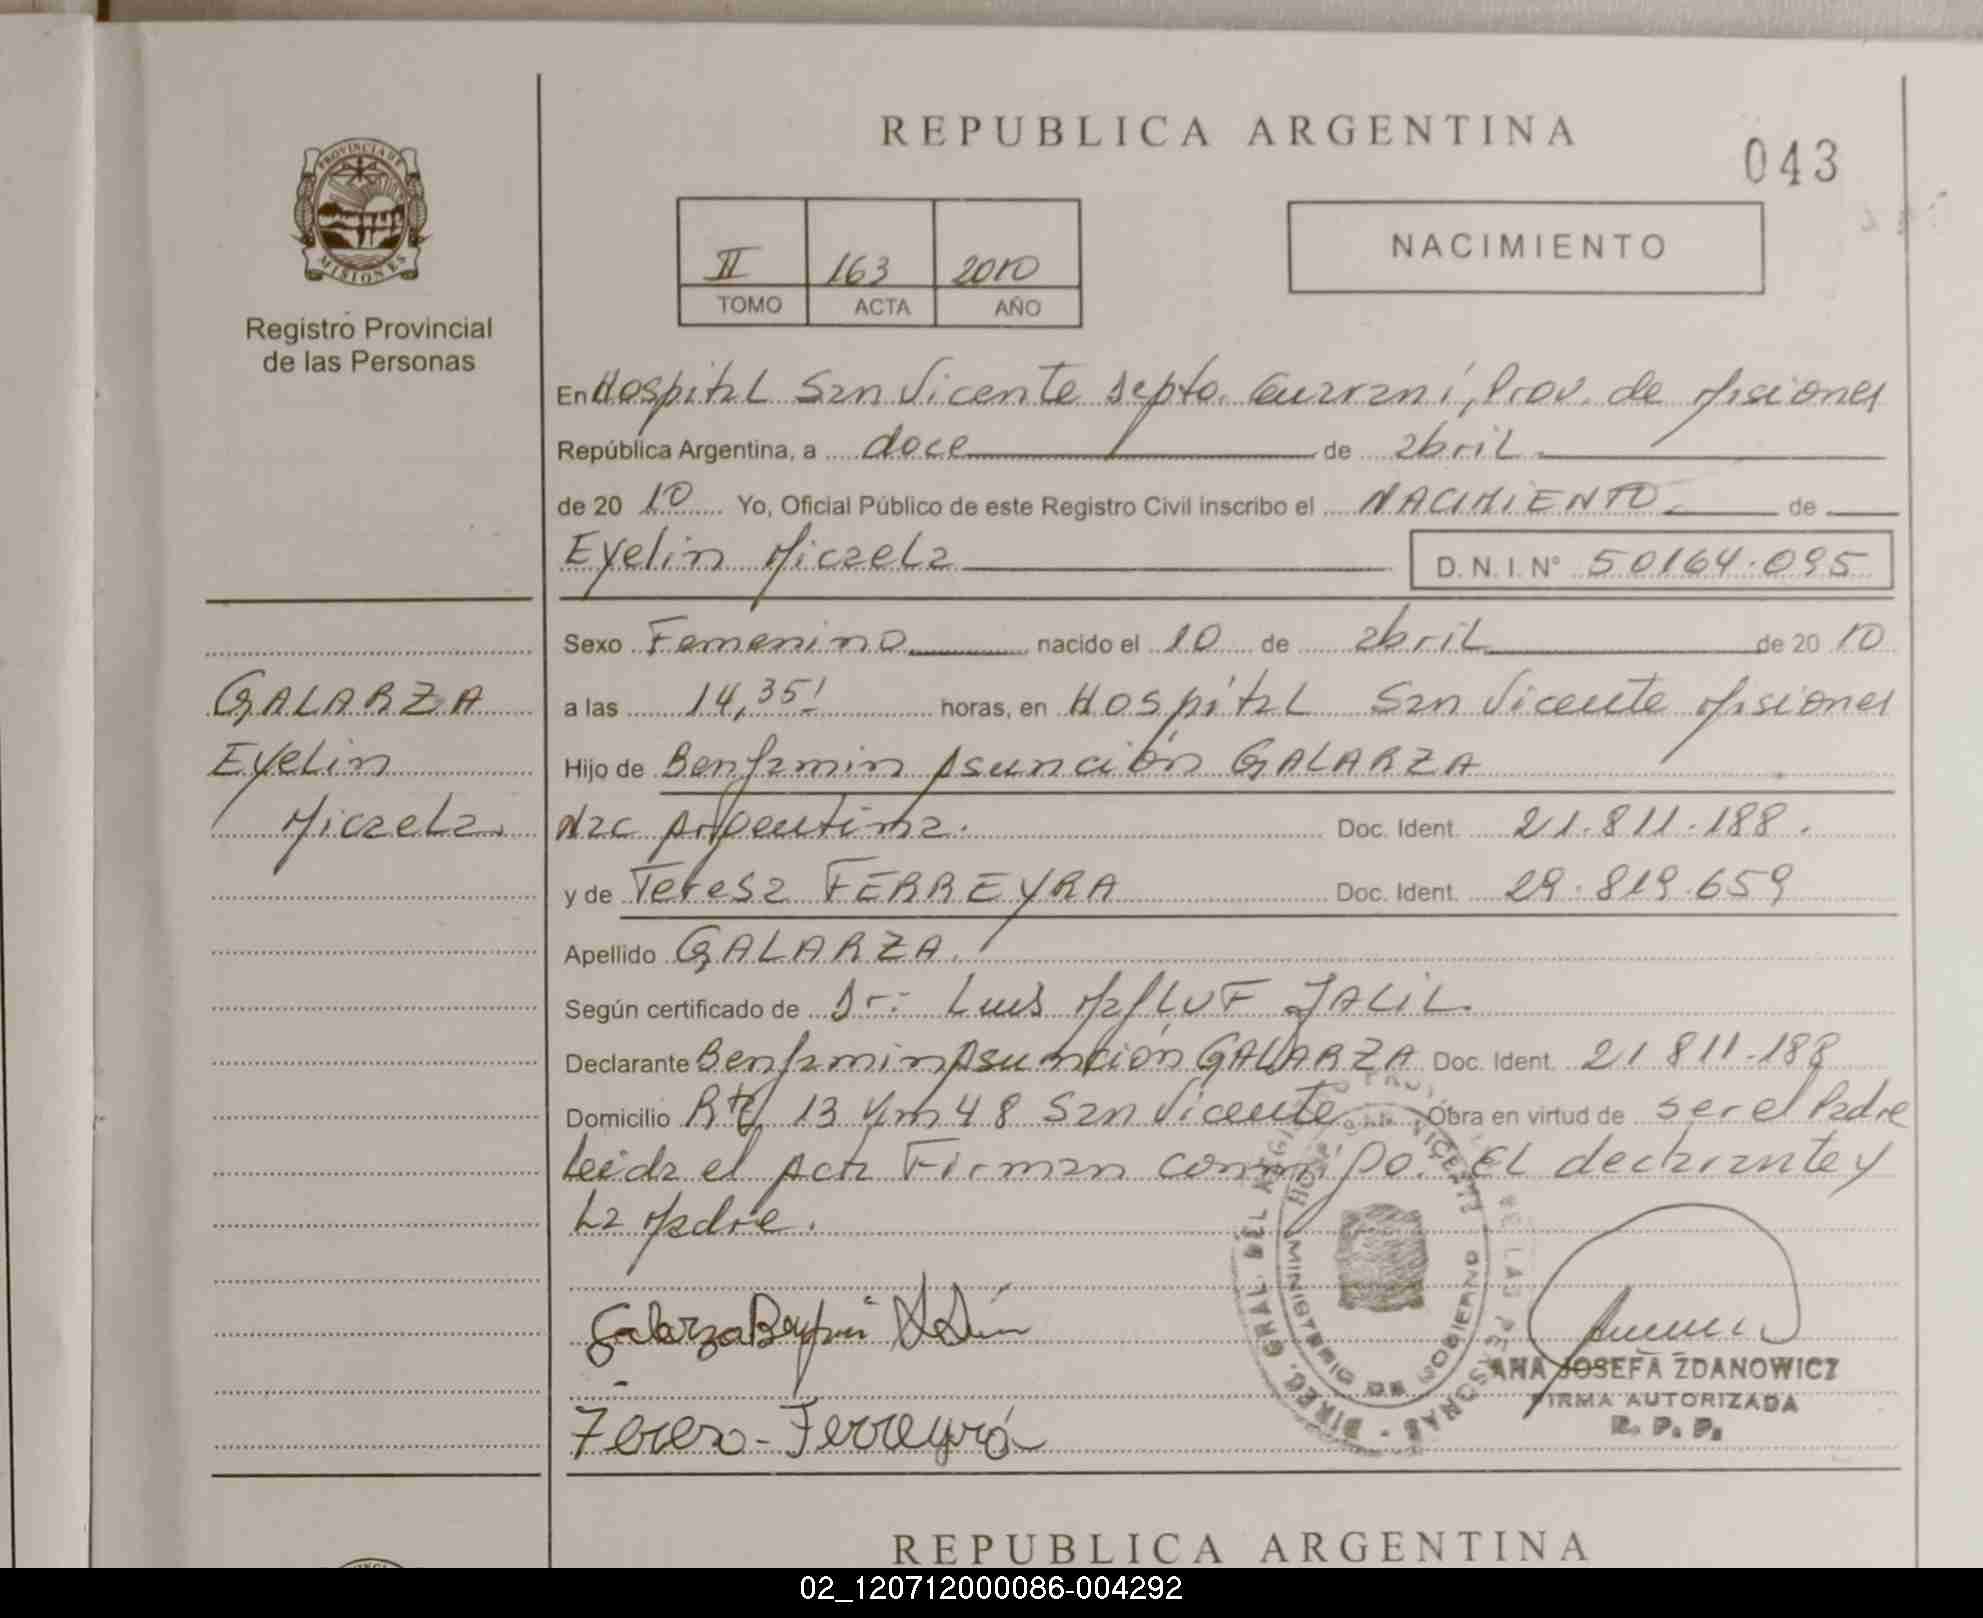 REPUBLICA ARGENTINA
043
PROVINCIA DE
MISIONES
Registro Provincial
de las Personas
II 163 2010
TOMO ACTA AÑO
NACIMIENTO
En Hospital San Vicente Depto. Guaraní, Prov. de Misiones
República Argentina, a doce de abril
de 20 10 Yo, Oficial Público de este Registro Civil inscribo el NACIMIENTO de
Eyelin Micaela D.N.I. N° 50164.095
Sexo Femenino nacido el 10 de abril de 20 10
GALARZA
Eyelin
Micaela.
a las 14,35' horas, en Hospital San Vicente Misiones
Hijo de Benjamin Asunción GALARZA
Nac Argentina. Doc. Ident. 21.811.188.
y de Teresa FERREYRA Doc. Ident. 29.819.659
Apellido GALARZA.
Según certificado de Dr: Luis JALIL.
Declarante Benjamin Asunción GALARZA Doc. Ident. 21 811.188
Domicilio Rta 13 Km 48 San Vicente Obra en virtud de ser el Padre
Leida el Acta Firman conmigo. El declarante y
La Madre.
DIREC. GRAL. DEL REGISTRO PROV. DE LAS PERSONAS
HOSPITAL SAN VICENTE
MINISTERIO DE GOBIERNO
Galarza Benjamin
Teresa - Ferreyra
ANA JOSEFA ZDANOWICZ
FIRMA AUTORIZADA
R. P. P.
REPUBLICA ARGENTINA
02_120712000086-004292